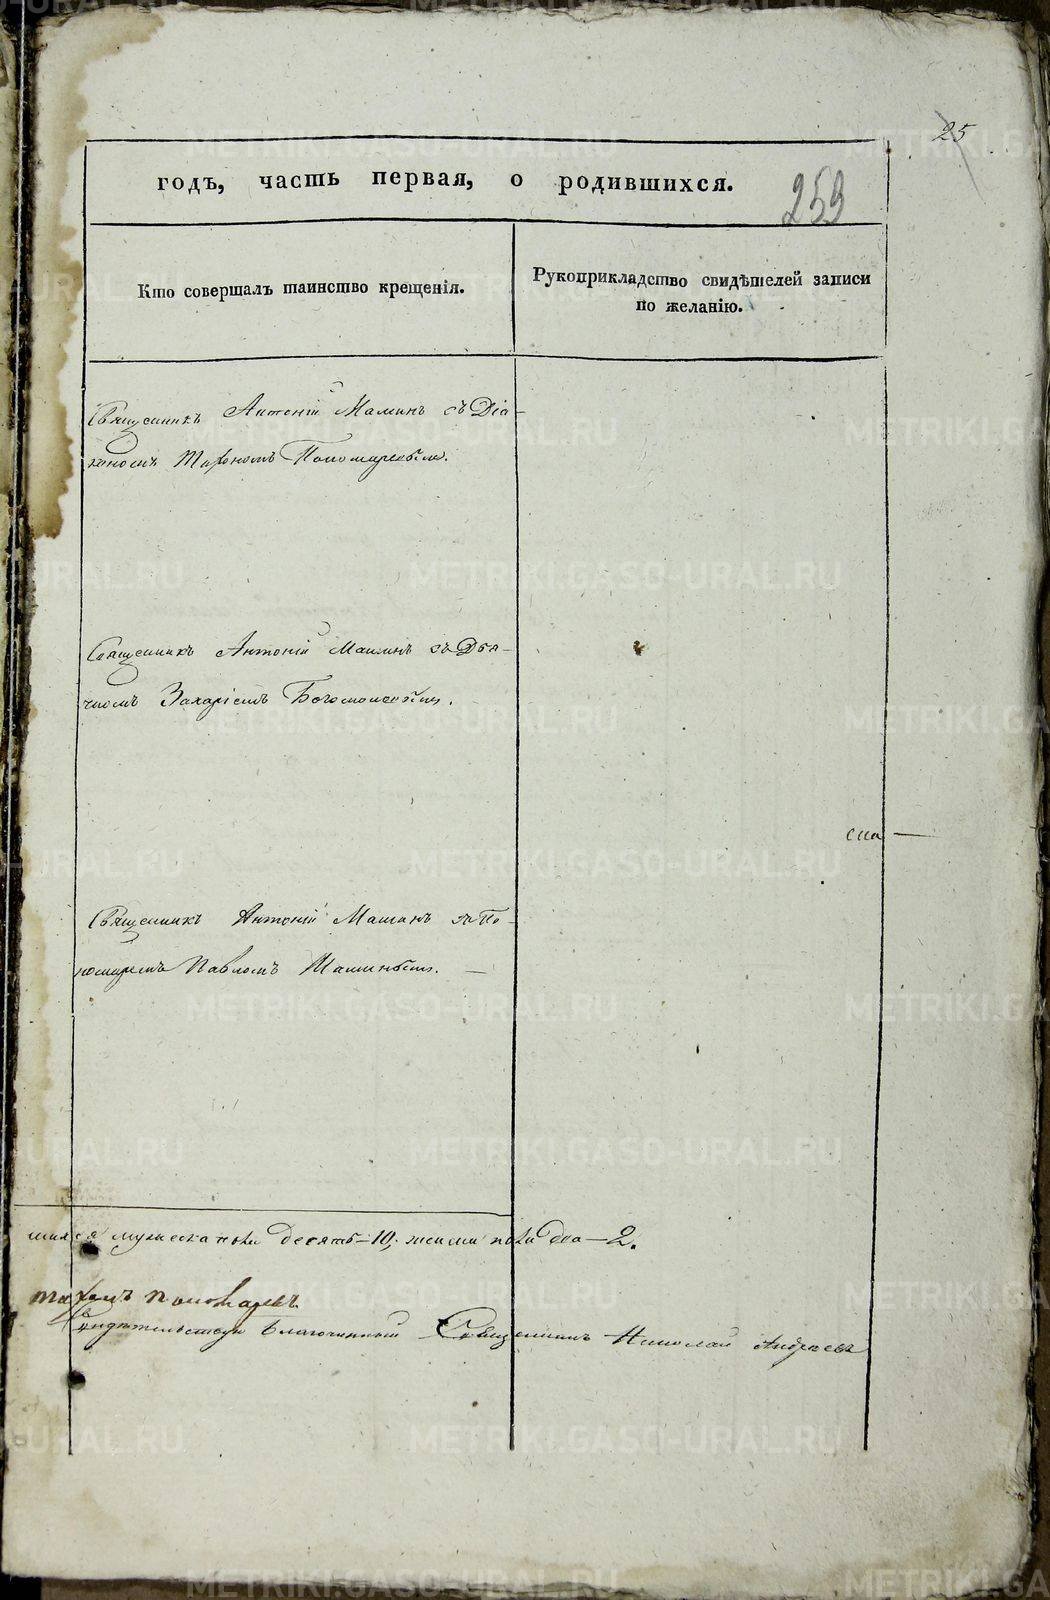 25
годъ, часть первая, о родившихся.
259
Кто совершалъ таинство крещенія.
Рукоприкладство свидѣтелей записи
по желанію.
Священникъ Антоній Маминъ съ Діа-
кономъ Пономаревым.
Священникъ Антоній Маминъ съ Дья-
чкомъ Захаріемъ
Священникъ Антоній Маминъ съ По-
номаремъ Павломъ
мужеска пола десять – 10, женска пола два – 2.
Пономаревъ
Благочинный Священникъ Николай Андреевъ
METRIKI.GASO-URAL.RU